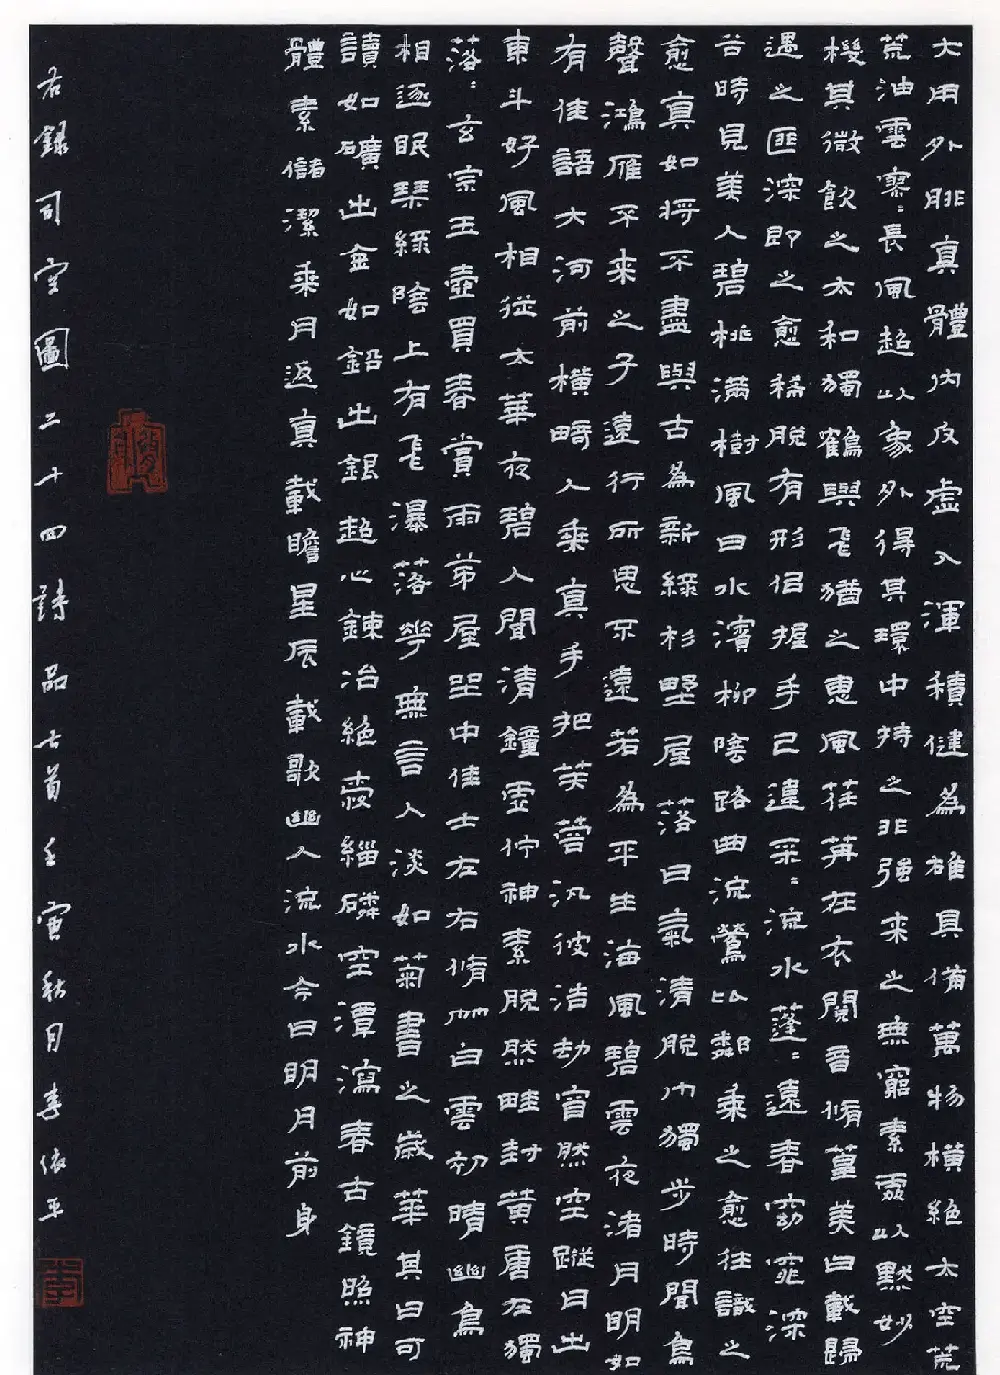 大用外腓真體內反虛入渾積健為雄具備萬物橫絕太空荒
荒油雲寥：長風超以象外得其環中持之非強來之無窮素處以默妙
機其微飲之太和獨鶴與飛猶之惠風荏苒在衣閱音脩篁美曰載歸
遇之匪深即之愈稀脫有形侣握手已違采：流水蓬：遠春窈窕深
谷時見美人碧桃滿樹風日水濱柳陰路曲流鶯比鄰乘之愈往識之
愈真如将不盡與古為新綠杉野屋落日氣清脫巾獨步時聞鳥
聲鴻雁不來之子遠行所思不遠若為平生海風碧雲夜渚月明如
有佳語大河前橫畸人乘真手把芙蓉汎彼浩劫窅然空蹤月出
東斗好風相從太華夜碧人聞清鐘虛佇神素脫然畦封黃唐在獨
落：玄宗玉壺買春賞雨茅屋坐中佳士左右脩竹白雲初晴幽鳥
相逐眠琴綠陰上有飛瀑落花無言人淡如菊書之歲華其曰可
讀如礦出金如鉛出銀超心鍊冶絕愛緇磷空潭瀉春古鏡照神
體素儲潔乘月返真載瞻星辰載歌幽人流水今日明月前身
右錄司空圖二十四詩品七首壬寅秋月李依平
李